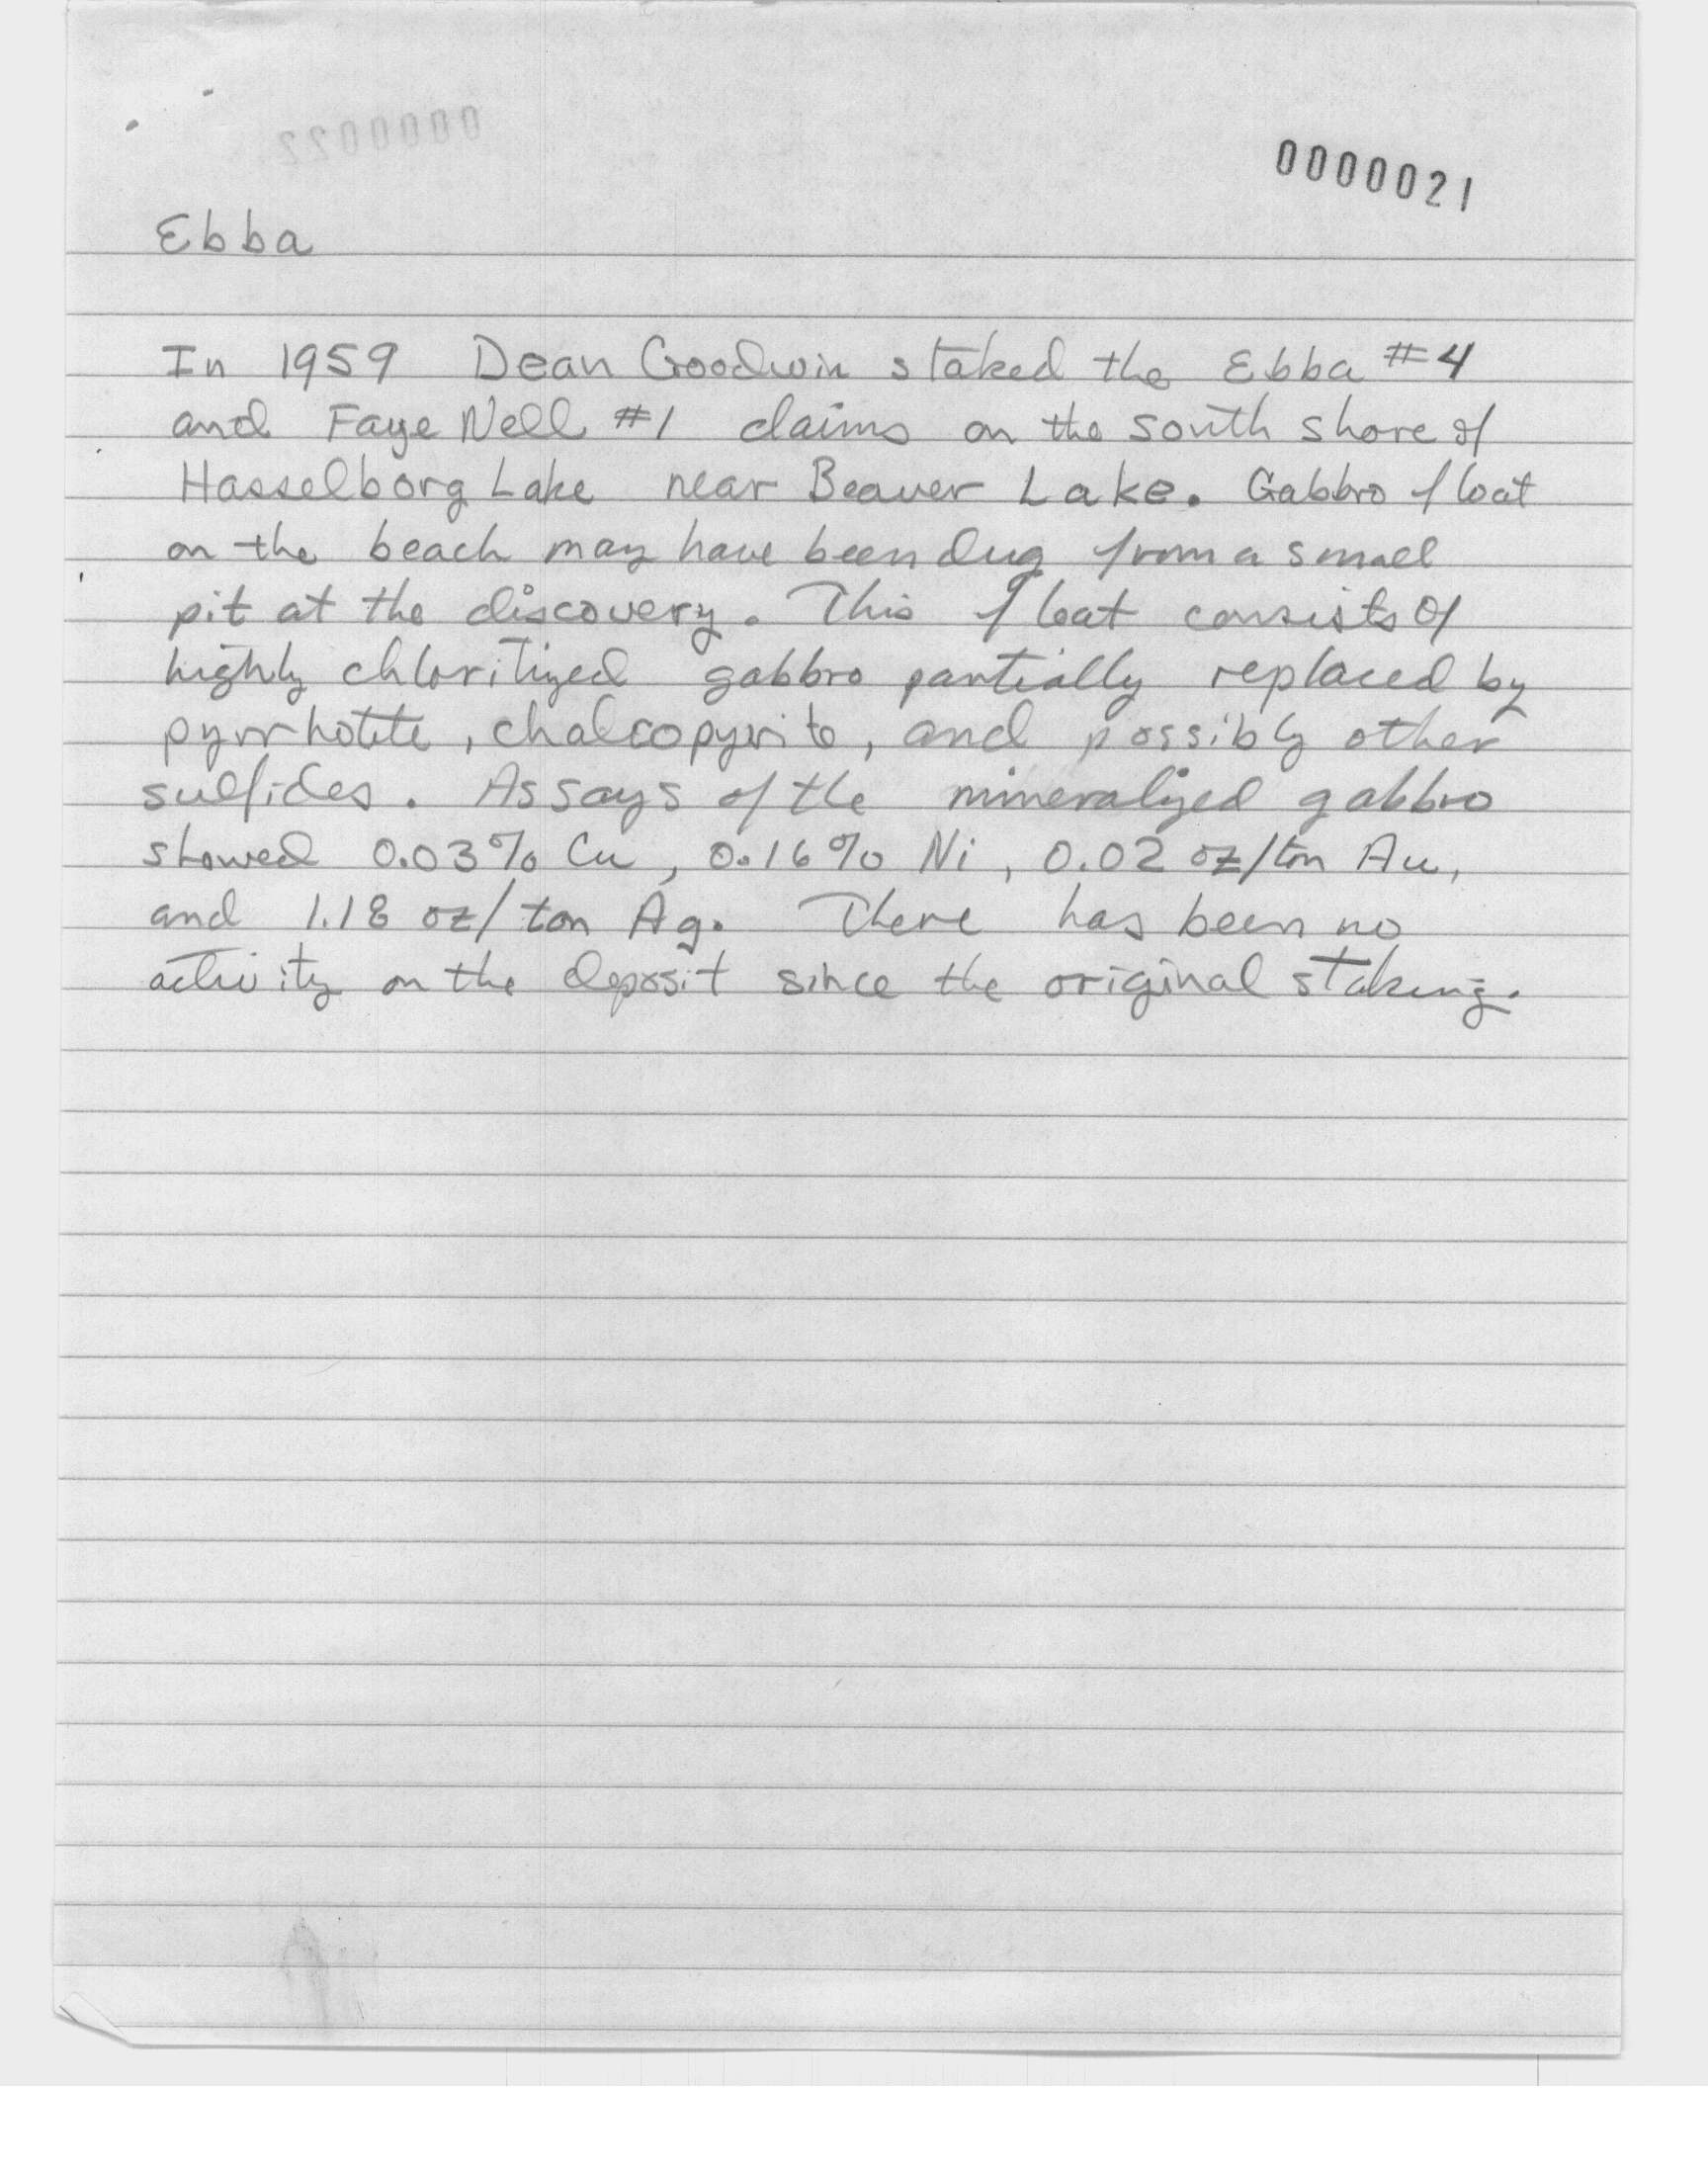 0000022
0000021
Ebba
In 1959 Dean Goodwin staked the Ebba #4
and Faye Nell #1 claims on the south shore of
Hasselborg Lake near Beaver Lake. Gabbro float
on the beach may have been dug from a small
pit at the discovery. This float consists of
highly chloritized gabbro partially replaced by
pyrrhotite, chalcopyrite, and possibly other
sulfides. Assays of the mineralized gabbro
showed 0.03% Cu, 0.16% Ni, 0.02 oz/ton Au,
and 1.18 oz/ton Ag. There has been no
activity on the deposit since the original staking.